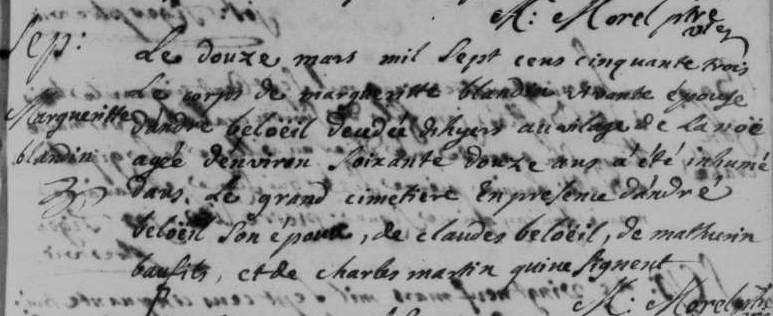 M: Morel ptre
vic
Sep:
Le douze mars mil Sept cens cinquante trois
Le corps de margueritte blandin vivante épouse
Margueritte
d'andré beloëil decedée d'hyers au vilage de La noë
blandin
agée d'environ Soixante douze ans a été inhumé
dans Le grand cimetiere En presence d'andré
beloëil Son époux, de claudes beloëil, de mathurin
et de charles martin qui ne Signent
M: Morel